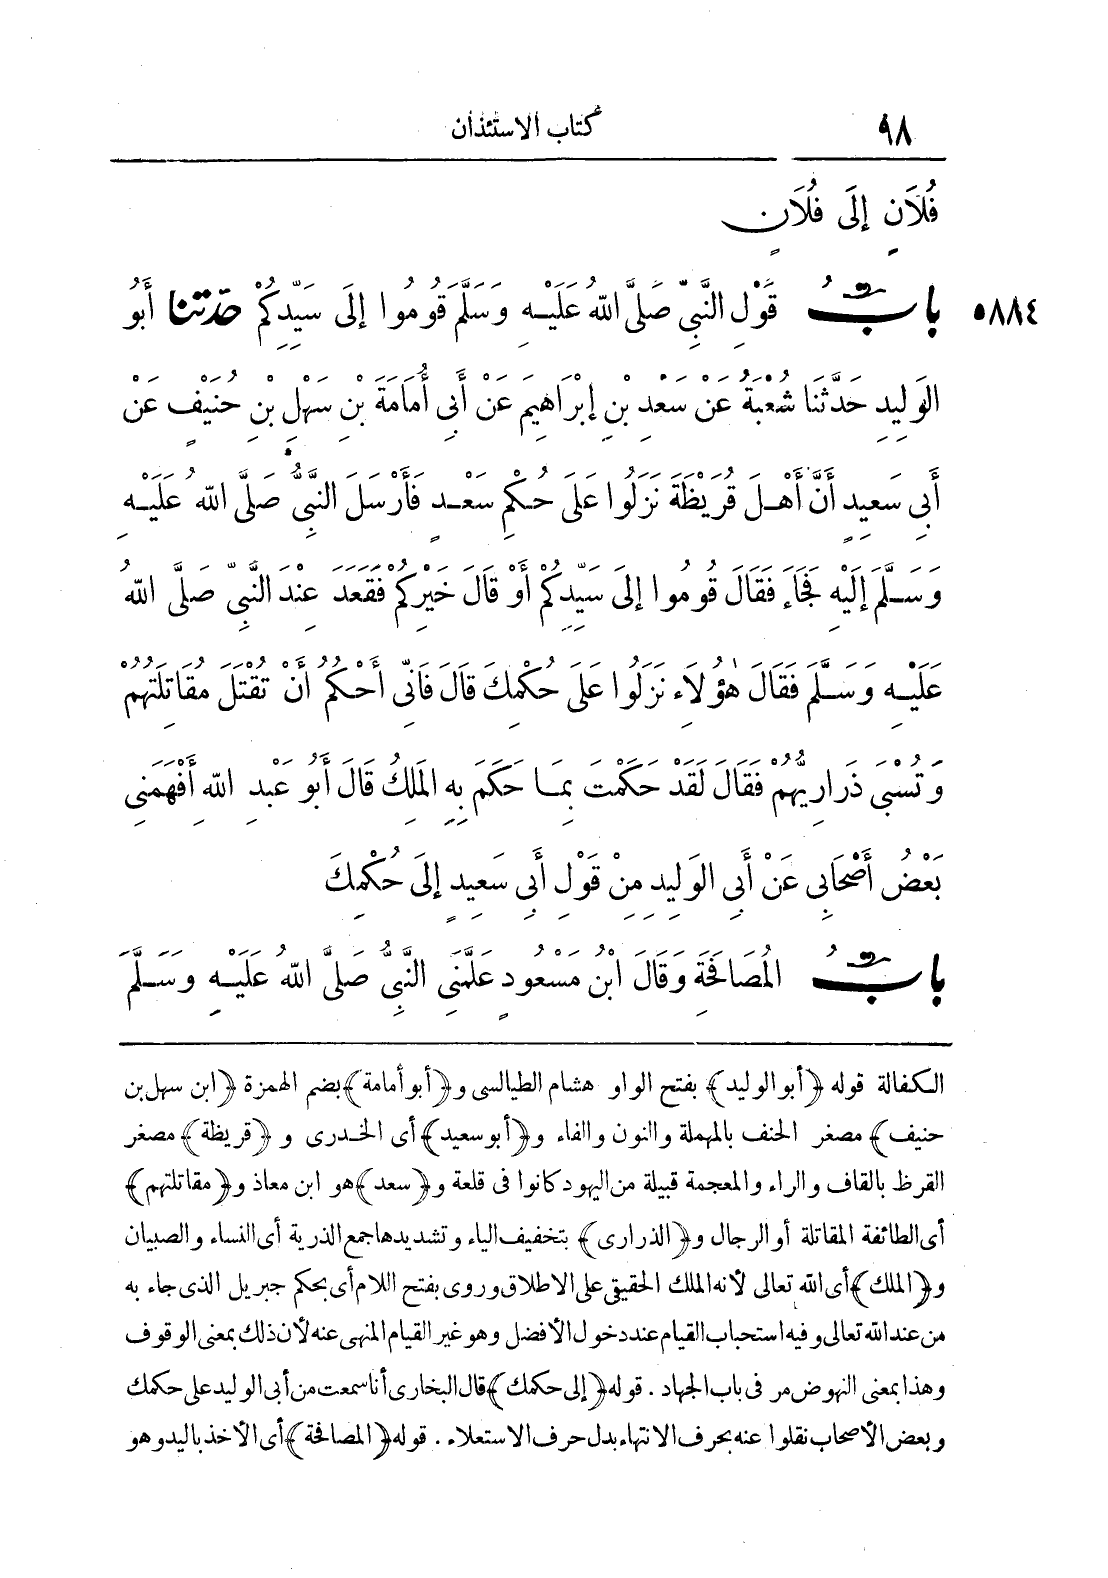 ٩٨ كتاب الاستئذان
فُلَانٍ إِلَى فُلَانٍ
بابُ قَوْلِ النَّبِيِّ صَلَّى اللهُ عَلَيْهِ وَسَلَّمَ قُومُوا إِلَى سَيِّدِكُمْ حدثنا أَبُو ٥٨٨٤
الوَلِيدِ حَدَّثَنَا شُعْبَةُ عَنْ سَعْدِ بْنِ إِبْرَاهِيمَ عَنْ أَبِي أُمَامَةَ بْنِ سَهْلِ بْنِ حُنَيْفٍ عَنْ
أَبِي سَعِيدٍ أَنَّ أَهْلَ قُرَيْظَةَ نَزَلُوا عَلَى حُكْمِ سَعْدٍ فَأَرْسَلَ النَّبِيُّ صَلَّى اللهُ عَلَيْهِ
وَسَلَّمَ إِلَيْهِ فَجَاءَ فَقَالَ قُومُوا إِلَى سَيِّدِكُمْ أَوْ قَالَ خَيْرِكُمْ فَقَعَدَ عِنْدَ النَّبِيِّ صَلَّى اللهُ
عَلَيْهِ وَسَلَّمَ فَقَالَ هٰؤُلَاءِ نَزَلُوا عَلَى حُكْمِكَ قَالَ فَإِنِّي أَحْكُمُ أَنْ تُقْتَلَ مُقَاتِلَتُهُمْ
وَتُسْبَى ذَرَارِيُّهُمْ فَقَالَ لَقَدْ حَكَمْتَ بِمَا حَكَمَ بِهِ المَلِكُ قَالَ أَبُو عَبْدِ اللهِ أَفْهَمَنِي
بَعْضُ أَصْحَابِي عَنْ أَبِي الوَلِيدِ مِنْ قَوْلِ أَبِي سَعِيدٍ إِلَى حُكْمِكَ
بابُ المُصَافَحَةِ وَقَالَ ابْنُ مَسْعُودٍ عَلَّمَنِي النَّبِيُّ صَلَّى اللهُ عَلَيْهِ وَسَلَّمَ
الكفالة قوله ﴿أبو الوليد﴾ بفتح الواو هشام الطيالسى و﴿أبو أمامة﴾ بضم الهمزة ﴿ابن سهل بن
حنيف﴾ مصغر الحنف بالمهملة والنون والفاء و﴿أبو سعيد﴾ أى الخدرى و ﴿قريظة﴾ مصغر
القرظ بالقاف والراء والمعجمة قبيلة من اليهود كانوا فى قلعة و﴿سعد﴾ هو ابن معاذ و﴿مقاتلتهم﴾
أى الطائفة المقاتلة أو الرجال و﴿الذرارى﴾ بتخفيف الياء وتشديدها جمع الذرية أى النساء والصبيان
و﴿الملك﴾ أى الله تعالى لأنه الملك الحقيقى على الاطلاق وروى بفتح اللام أى بحكم جبريل الذى جاء به
من عند الله تعالى وفيه استحباب القيام عند دخول الأفضل وهو غير القيام المنهى عنه لأن ذلك بمعنى الوقوف
وهذا بمعنى النهوض مر فى باب الجهاد . قوله ﴿إلى حكمك﴾ قال البخارى أنا سمعت من أبى الوليد على حكمك
وبعض الأصحاب نقلوا عنه بحرف الانتهاء بدل حرف الاستعلاء . قوله ﴿المصافحة﴾ أى الأخذ باليد وهو